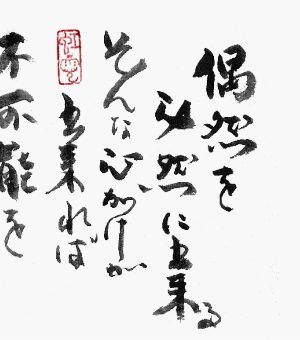 偶然を
必然に出来る
そんな心がけが
出来れば
不可能を